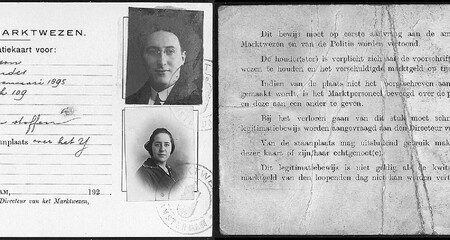 MARKTWEZEN.
atiekaart voor:
1895
109
stoffen
aanplaats over het Y
AM, 192
Directeur van het Marktwezen,
Dit bewijs moet op eerste aanvraag aan de am
Marktwezen en van de Politie worden vertoond.
De houder(ster) is verplicht zich aan de voorschrif
wezen te houden en het verschuldigde marktgeld op tij
Indien van de plaats niet het voorgeschreven aan
gemaakt wordt, is het Marktpersoneel bevoegd over de p
en deze aan een ander te geven.
Bij het verloren gaan van dit stuk moet schri
legitimatiebewijs worden aangevraagd aan den Directeur v
Van de staanplaats mag uitsluitend gebruik mak
dezer kaart of zijn/haar echtgenoot(e).
Dit legitimatiebewijs is niet geldig als de kwit
marktgeld van den loopenden dag niet kan worden vert